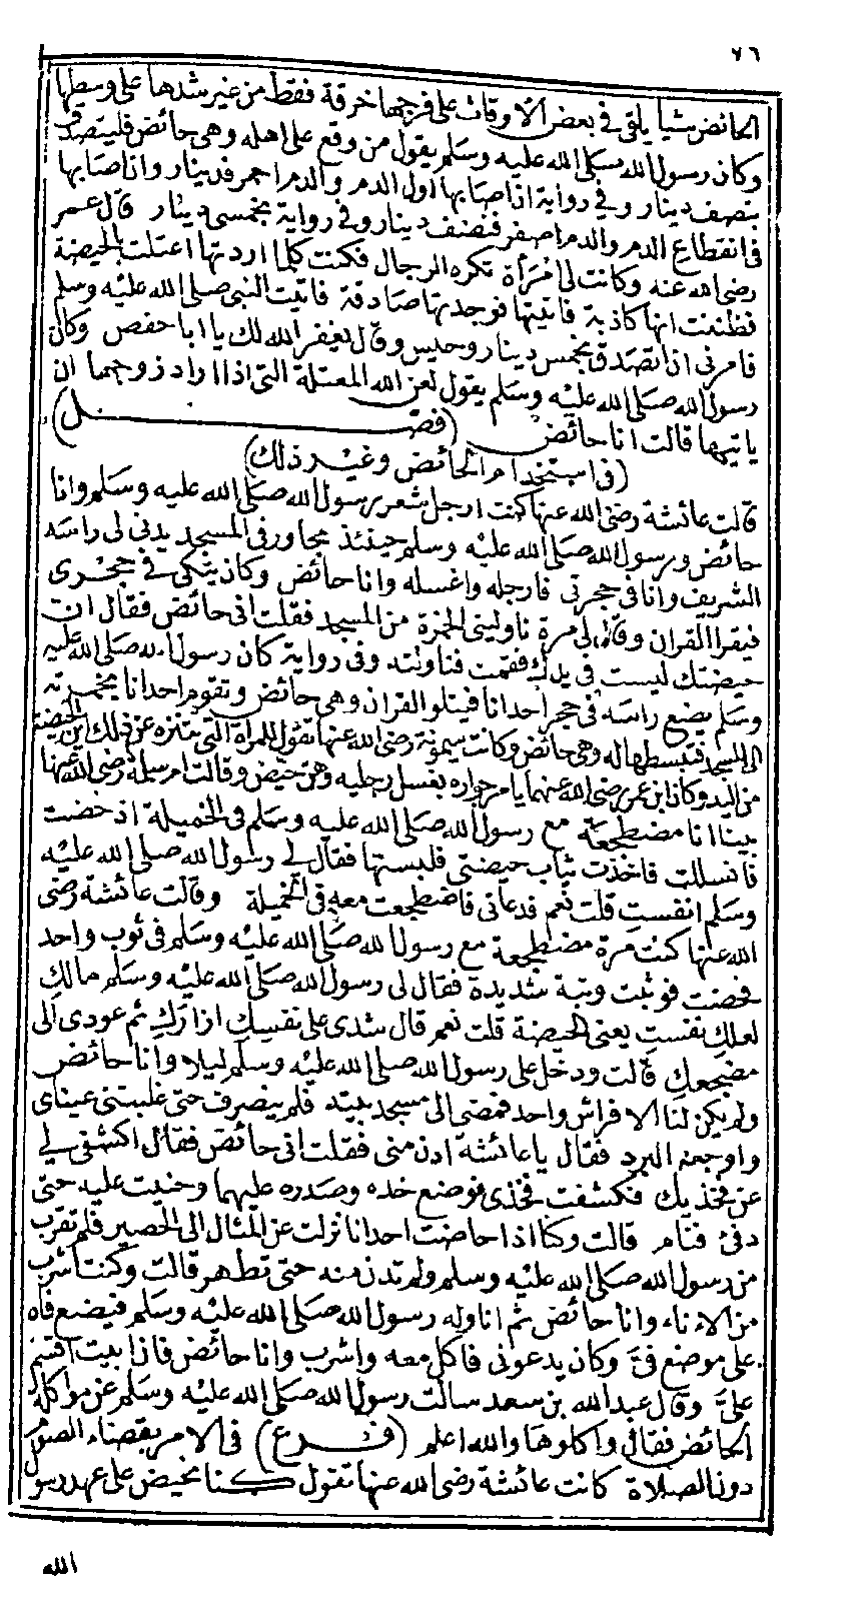 ٧٦
الحائض شيأ يلقى في بعض الاوقات على فرجها خرقة فقط من غير شدها على وسطها
وكان رسول الله صلى الله عليه وسلم يقول من وقع على اهله وهى حائض فليتصدق
بنصف دينار وفي رواية اذا صابها اول الدم والدم احمر فدينار واذا صابها
في انقطاع الدم والدم اصفر فنصف دينار وفي رواية بخمسى دينار قال عمر
رضى الله عنه وكانت لى امرأة تكره الرجال فكنت كلما اردتها اعتلت بالحيضة
فظننت انها كاذبة فاتيتها فوجدتها صادقة فاتيت النبى صلى الله عليه وسلم
فامرنى ان اتصدق بخمس دينار وحيس وقال يغفر الله لك يا ابا حفص وكان
رسول الله صلى الله عليه وسلم يقول لعن الله المعتلة التى اذا اراد زوجها ان
ياتيها قالت انا حائض (فصل)
(في استخدام الحائض وغير ذلك)
قالت عائشة رضى الله عنها كنت ارجل شعر رسول الله صلى الله عليه وسلم وانا
حائض ورسول الله صلى الله عليه وسلم حينئذ مجاور في المسجد يدنى لى راسه
الشريف وانا في حجرتى فارجله واغسله وانا حائض وكان يتكى في حجرى
فيقرا القران وقال لى مرة ناولينى الخمرة من المسجد فقلت انى حائض فقال ان
حيضتك ليست في يدك فقمت فناولته وفى رواية كان رسول الله صلى الله عليه
وسلم يضع راسه في حجر احدانا فيتلو القران وهى حائض وتقوم احدانا بخمرته
الى المسجد فتبسطها له وهى حائض وكانت ميمونة رضى الله عنها تقول للمراة التى تتنزه عن ذلك اين الحيضة
من اليد وكان ابن عمر رضى الله عنهما يامر جواره بغسل رجليه وهن حيض وقالت ام سلمة رضى الله عنها
بينا انا مضطجعة مع رسول الله صلى الله عليه وسلم في الخميلة اذ حضت
فانسللت فاخذت ثياب حيضتى فلبستها فقال لى رسول الله صلى الله عليه
وسلم انفست قلت نعم فدعانى فاضطجعت معه في الخميلة وقالت عائشة رضى
الله عنها كنت مرة مضطجعة مع رسول الله صلى الله عليه وسلم في ثوب واحد
فحضت فوثبت وثبة شديدة فقال لى رسول الله صلى الله عليه وسلم مالك
لعلك نفست يعنى الحيضة قلت نعم قال شدى على نفسك ازارك ثم عودى الى
مضجعك قالت ودخل على رسول الله صلى الله عليه وسلم ليلا وانا حائض
ولم يكن لنا الا فراش واحد فمضى الى مسجد بيته فلم ينصرف حتى غلبتنى عيناى
واوجعه البرد فقال يا عائشة ادن منى فقلت انى حائض فقال اكشفى لى
عن فخذيك فكشفت فخذى فوضع خده وصدره عليهما وحنيت عليه حتى
دفئ فنام قالت وكنا اذا حاضت احدانا نزلت عن المثال الى الحصير فلم تقرب
من رسول الله صلى الله عليه وسلم ولم تدن منه حتى تطهر قالت وكنت اشرب
من الاناء وانا حائض ثم اناوله رسول الله صلى الله عليه وسلم فيضع فاه
على موضع فىّ وكان يدعونى فاكل معه واشرب وانا حائض فاذا ابيت اقسم
علىّ وقال عبد الله بن سعد سالت رسول الله صلى الله عليه وسلم عن مواكلة
الحائض فقال واكلوها والله اعلم (فرع) في الامر بقضاء الصوم
دون الصلاة كانت عائشة رضى الله عنها تقول كنا نحيض على عهد رسول
الله